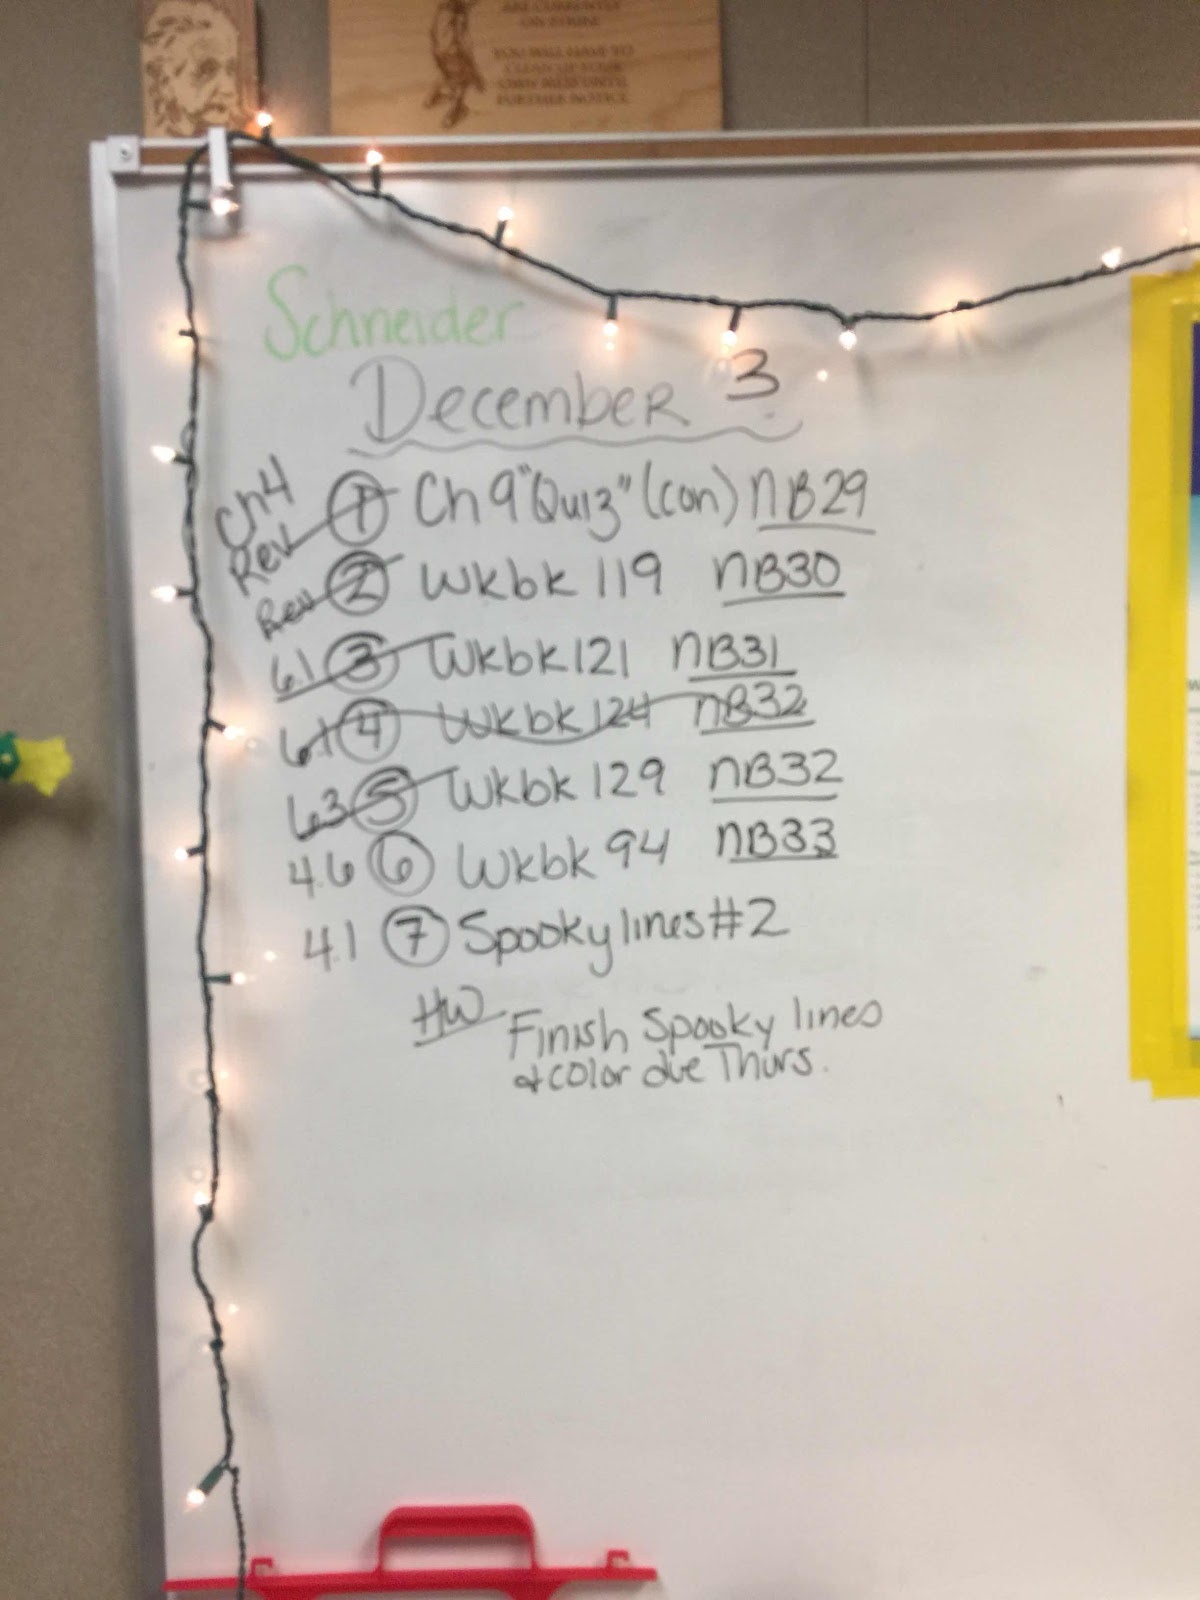 ARE CURRENTLY
ON STRIKE
YOU WILL HAVE TO
CLEAN UP YOUR
OWN MESS UNTIL
FURTHER NOTICE
Schneider
December 3
Ch4 Rev ① Ch 9 "Quiz" (con) NB29
Rev ② Wkbk 119 NB30
6.1 ③ Wkbk 121 NB31
6.1 ④ Wkbk 124 NB32
6.3 ⑤ Wkbk 129 NB32
4.6 ⑥ Wkbk 94 NB33
4.1 ⑦ Spooky lines #2
HW Finish Spooky lines
& color due Thurs.